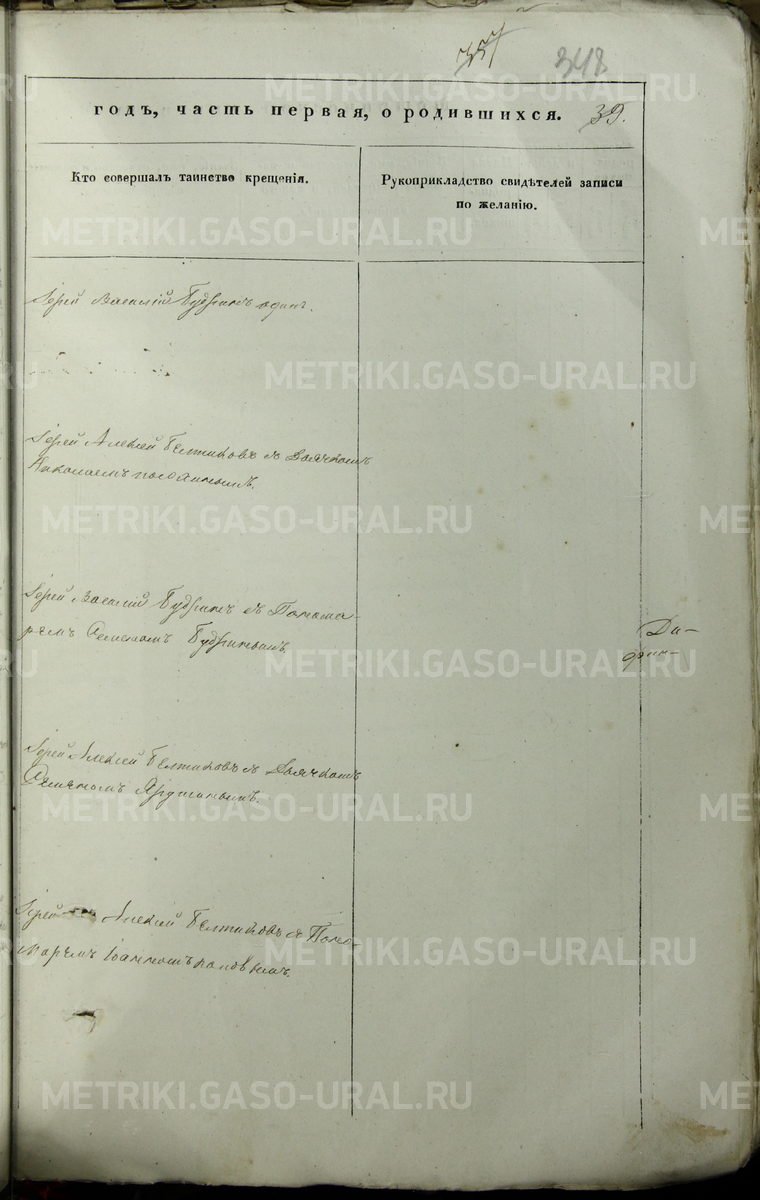 357
348
годъ, часть первая, о родившихся. 39.
Кто совершалъ таинство крещенія.
Рукоприкладство свидѣтелей записи
по желанію.
Іерей Василій Будринъ один.
Іерей Алексѣй Бѣлтиковъ съ Дьячкомъ
Николаемъ
Іерей Василій Будринъ съ Понома-
ремъ Семеномъ Будринымъ.
Іерей Алексѣй Бѣлтиковъ съ Дьячкомъ
Семеномъ
Іерей Алексѣй Бѣлтиковъ съ Поно-
маремъ Іоанномъ Поповымъ.
METRIKI.GASO-URAL.RU